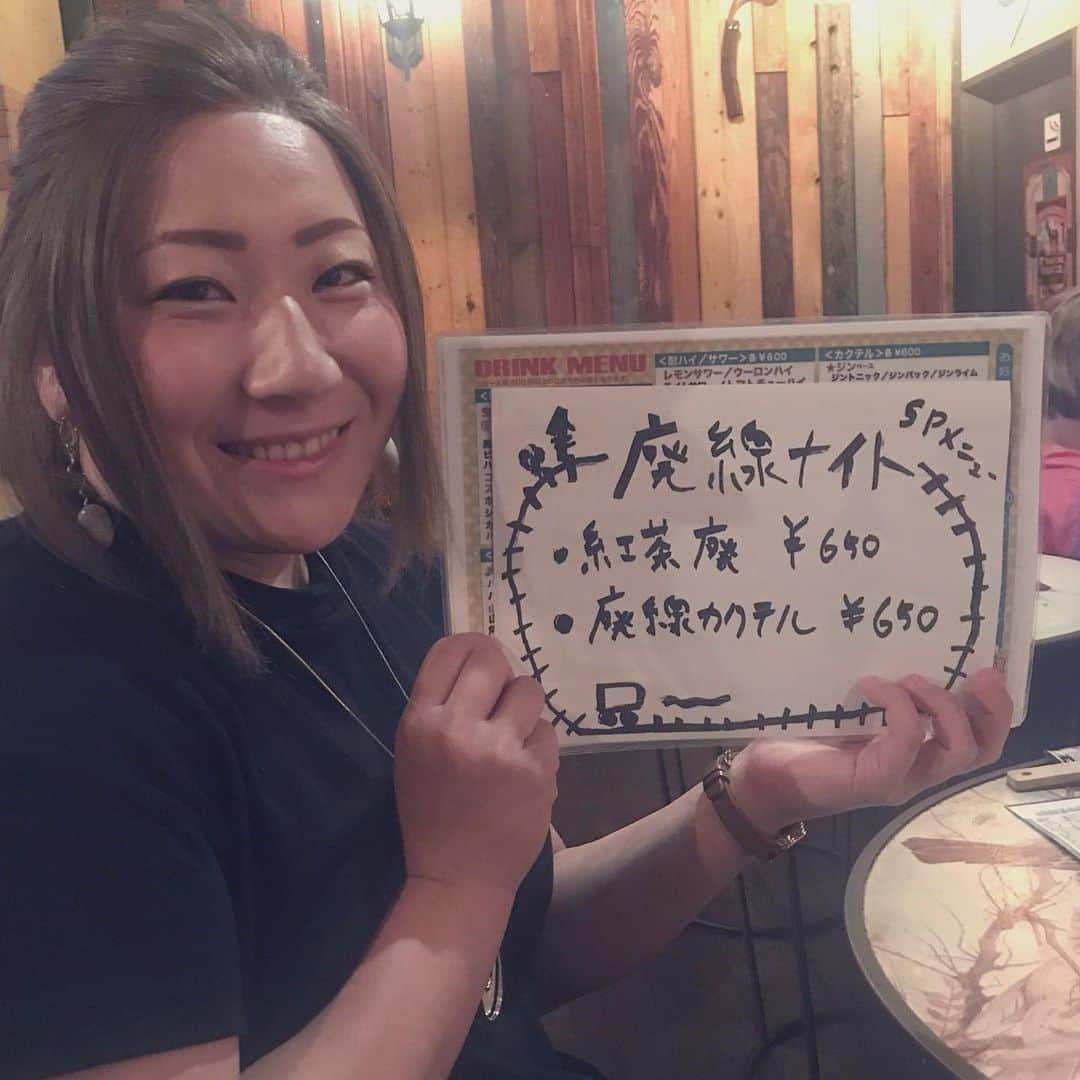 DRINK MENU
<酎ハイ/サワー>各¥600
レモンサワー/ウーロンハイ
<カクテル>各¥600
★ジンベース
ジントニック/ジンバック/ジンライム
廃線ナイト
SPメニュー
・紅茶廃 ¥650
・廃線カクテル ¥650